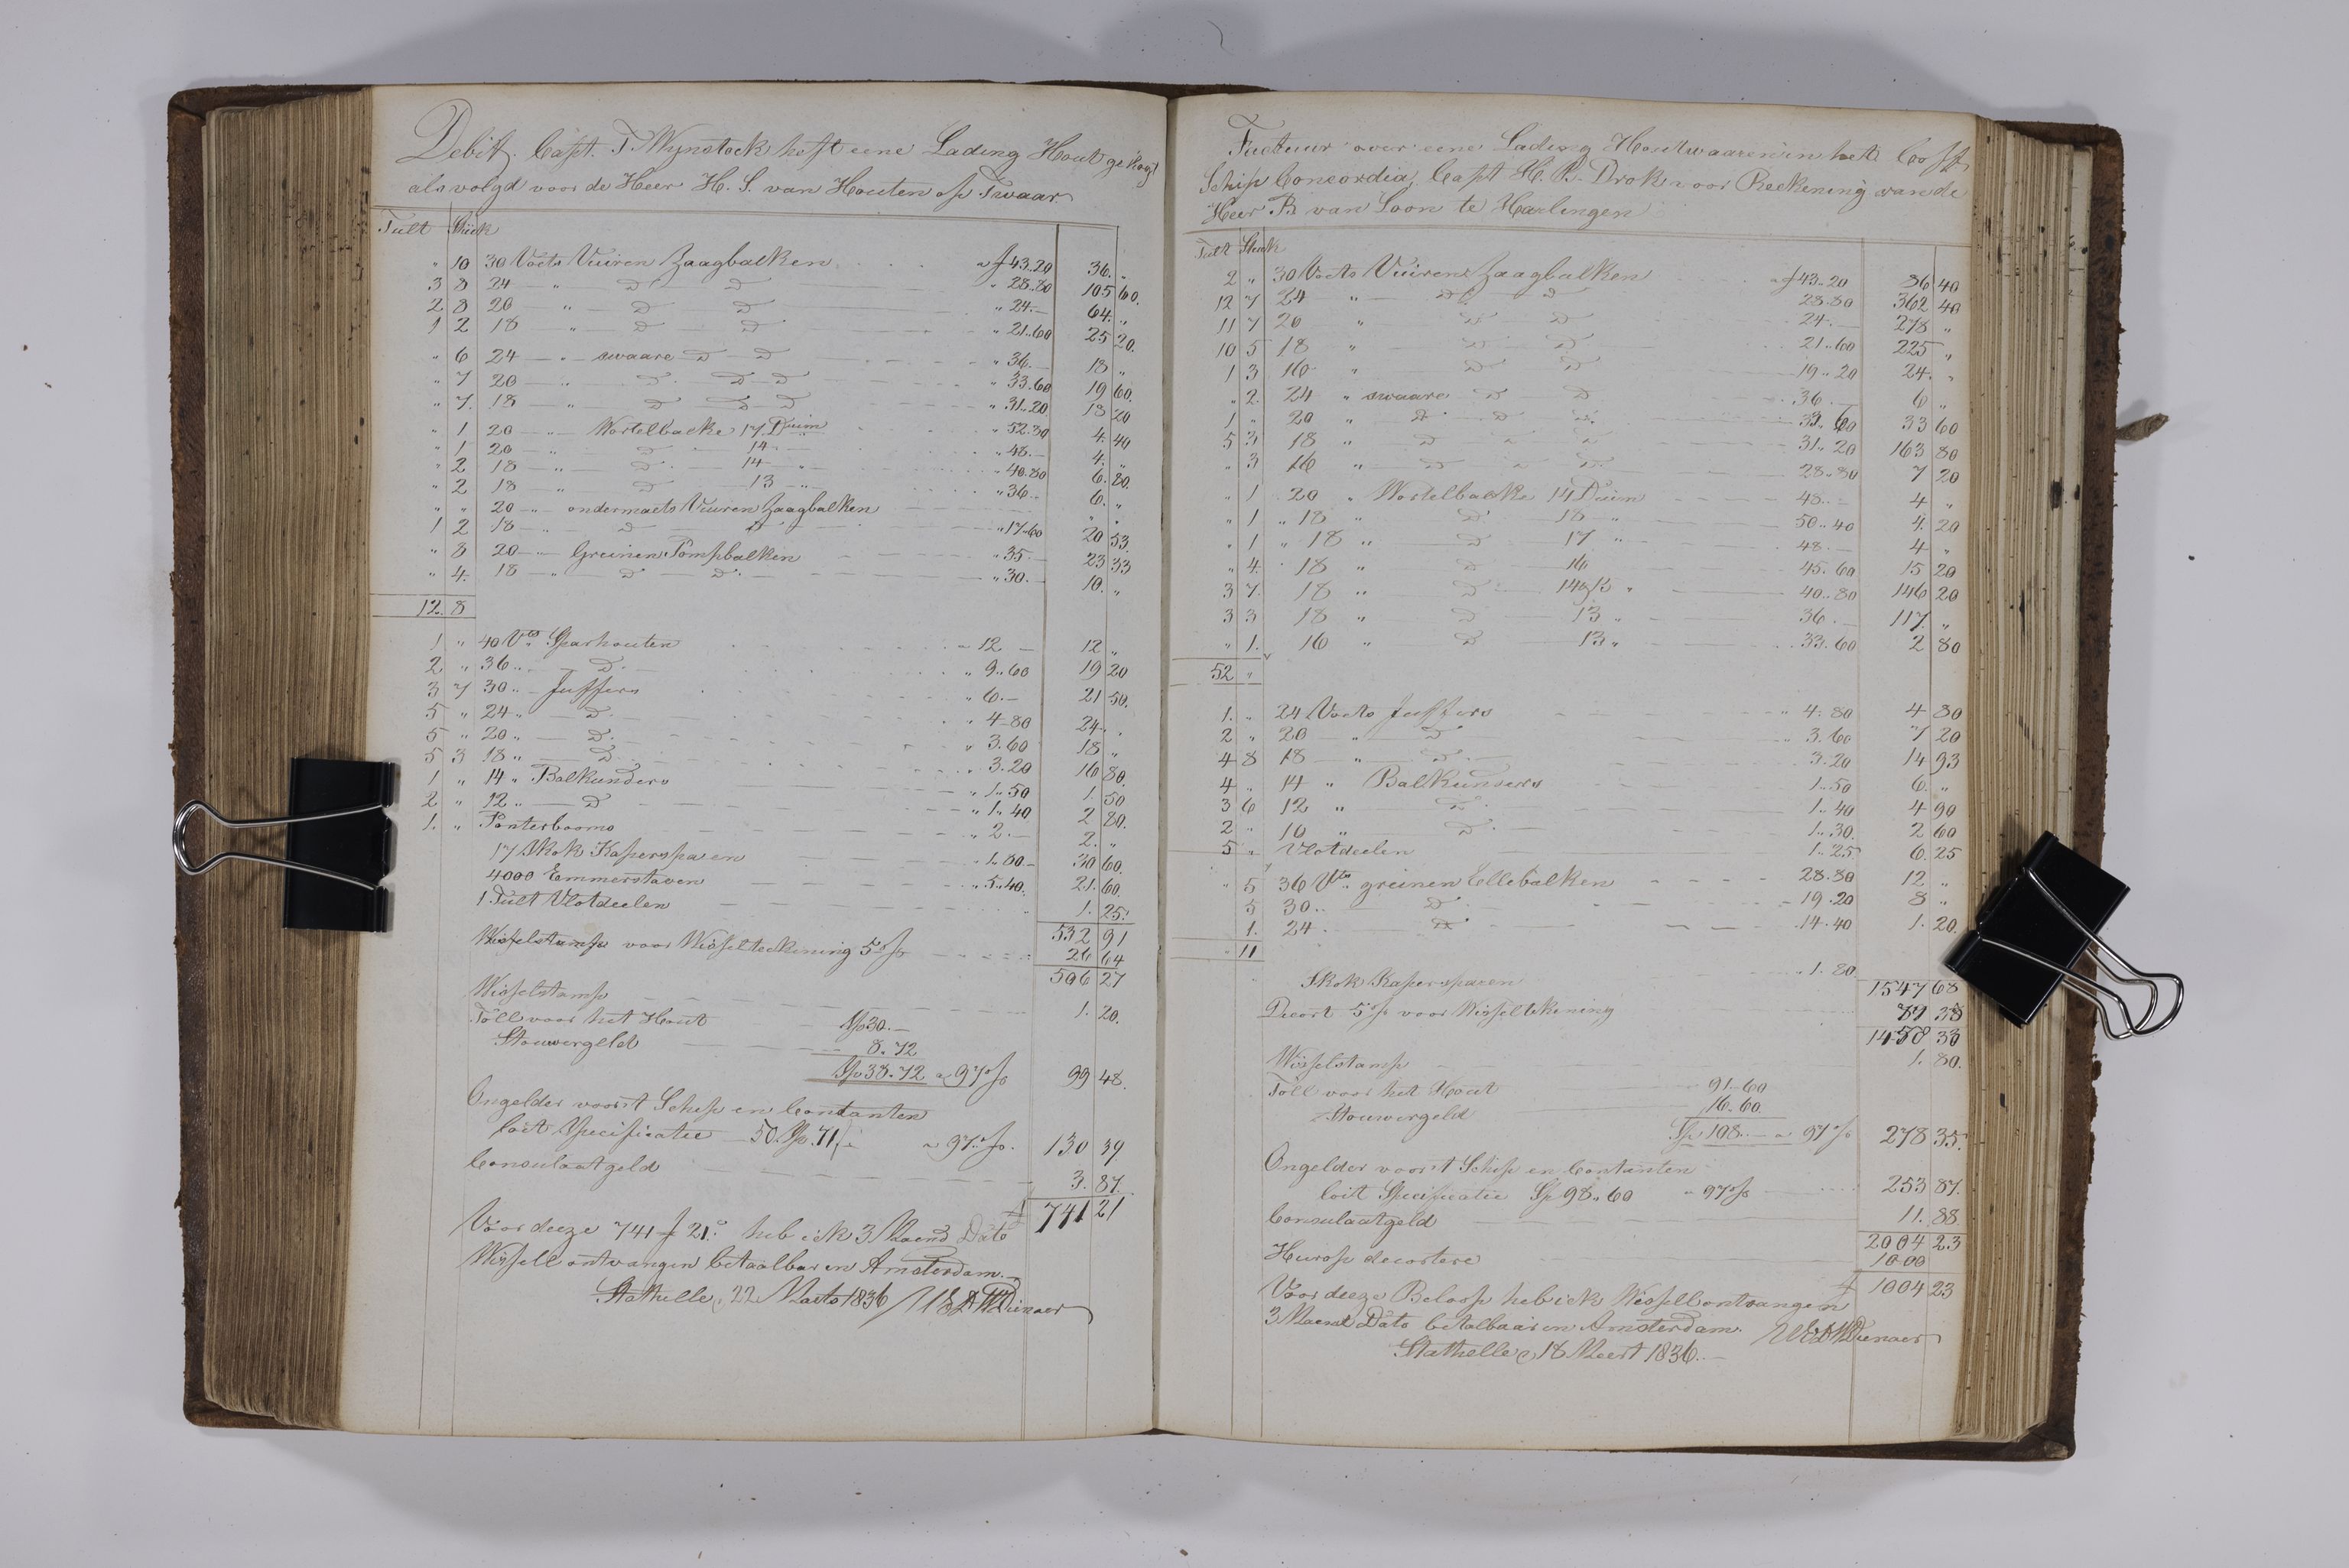 Debit. Capt. T Wynstock heft eene Lading Hout gekogt
als volgd voor de Heer H. S. van Houten op Zwaar
Tult Stück
" 10 30 Voets Vuiren Zaagbalken a f 43.20 36. "
3 8 24 " D D " 28.80 105 60.
2 8 20 " D D " 24.— 64. "
1 2 18 " D D " 21.60 25 20.
" 6 24 — " — swaare D — D " 36.— 18 "
" 7 20 — " D D D " 33.60 19 60.
" 7. 18 — " D D D " 31.20 18 20
" 1 20 — " — Wortelbalke 17 Duim " 52.80 4. 40
" 1 20 — " D — 14 " " 48.— 4. "
" 2 18 — " D — 14 — " " 40.80 6. 80.
" 2 18 — " D 13 — " " 36.. 6. "
" " 20 — " — ondermaets Vuuren Zaagbalken " "
1 2 18 — " D D " 17.60 20 53.
" 8 20 — " — Greinen Pompbalken " 35.— 23 33
" 4. 18 — " D — D. " 30.— 10. "
12. 8
1 " 40 Vts Sparhouten " 12 — 12 "
2 " 36 " — D. " 9..60 19 20
3 7 30 " — Juffers " 6.— 21 50.
5 " 24 " — D. " 4-80 24.. "
5 " 20 " — D. " 3.60 18 "
5 3 18 " D. " 3.20 16 80.
1 " 14 " Balkunders " 1..50 1. 50
2 " 12 " — D " 1..40 2 80.
1. " Ponterbooms " 2.— 2. "
17 Skok Kapersparen " 1..80 — 30 60.
4000 Emmerstaven " 5..40. 21. 60
1 Tult Vlotdeelen 1. 25.
532 91
Wisselstamp voor Wisselteekening 5 % 26 64
506 27
Wisselstamp 1. 20.
Töll voor het Hout Sp 30.—
Stouwergeld 8.72
Sp 38.72 a 97 % 99 48.
Ongelder voor't Schip en Contanten
loit Specificatie — 50. Sp. 71 a 97. %. 130 39.
Consulaatgeld 3. 87.
f 741 21
Voor deeze 741 f 21 c heb ick 3 Maend Dato
Wissell ontvangen betaalbar in Amsterdam.
Stathelle, 22 Maets 1836
Factuur over eene Lading Houtwaaren in het Cooff
Schip Concordia, Capt H. R. Drok voor Reekening van de
Heer B van Loon te Harlingen
Tult Stuk
2 " 30 Voets Vuiren Zaagbalken a f 43..20 86 40
12 7 24 " D D 28.80 362 40
11 7 20 " D D 24.— 278 "
10 5 18 " D D 21..60 225 "
1 3 16 " D D 19..20 24. "
" 2. 24 " swaare D D 36.— 6 "
1 " 20 " D D D. 33..60 33 60
5 3 18 " D " " 31..20 163 80
" 3 16 " — D " D. 28..80 7 20
" 1 20 " Wortelbalke 14 Duim 48.— 4 "
" 1 " 18 " D. 18 " 50..40 4. 20
" 1 " 18 " D 17 " 48.— 4 "
" 4. 18 " D 16 45.60 15 20
3 7. 18 " D 14 & 15 " 40..80 146 20
3 3 18 " D 13 " 36.— 117. "
" 1. 16 " D 13 " 33.60 2 80
52 "
1. " 24 Voets Juffers " 4.80 4 80
2 " 20 " D " 3.60 7 20
4 8 18 " D. 3.20 14 93
4 " 14 " Balkunders 1..50 6. "
3 6 12 " D. 1..40 4 90
2 " 10 " D. 1..30. 2 60
5 " Vlotdeelen 1..25 6. 25
" 5 36 Vts greinen Ellebalken 28.80 12 "
5 30.. D 19.20 8 "
1. 24 . D 14.40 1. 20.
" 11
Skok Kapersparen " 1. 80.
1547 68
Decort 5 % voor Wisseltekening
1450 33
Wisselstamp 1. 80.
Töll voor het Hout 91..60
Stouwergeld 16..60.
Sp 108.— a 97 % 278 35.
Ongelder voor't Schip en Contanten
loit Specificatie Sp 98..60 a 97 % 253 87.
Consulaatgeld 11. 88
2004 23
Hierop decortere 1000
f 1004 23
Voor deeze Beloop heb ick Wissell ontvangen
3 Maend Dato betalbaar in Amsterdam.
Stathelle 18 Meert 1836.—